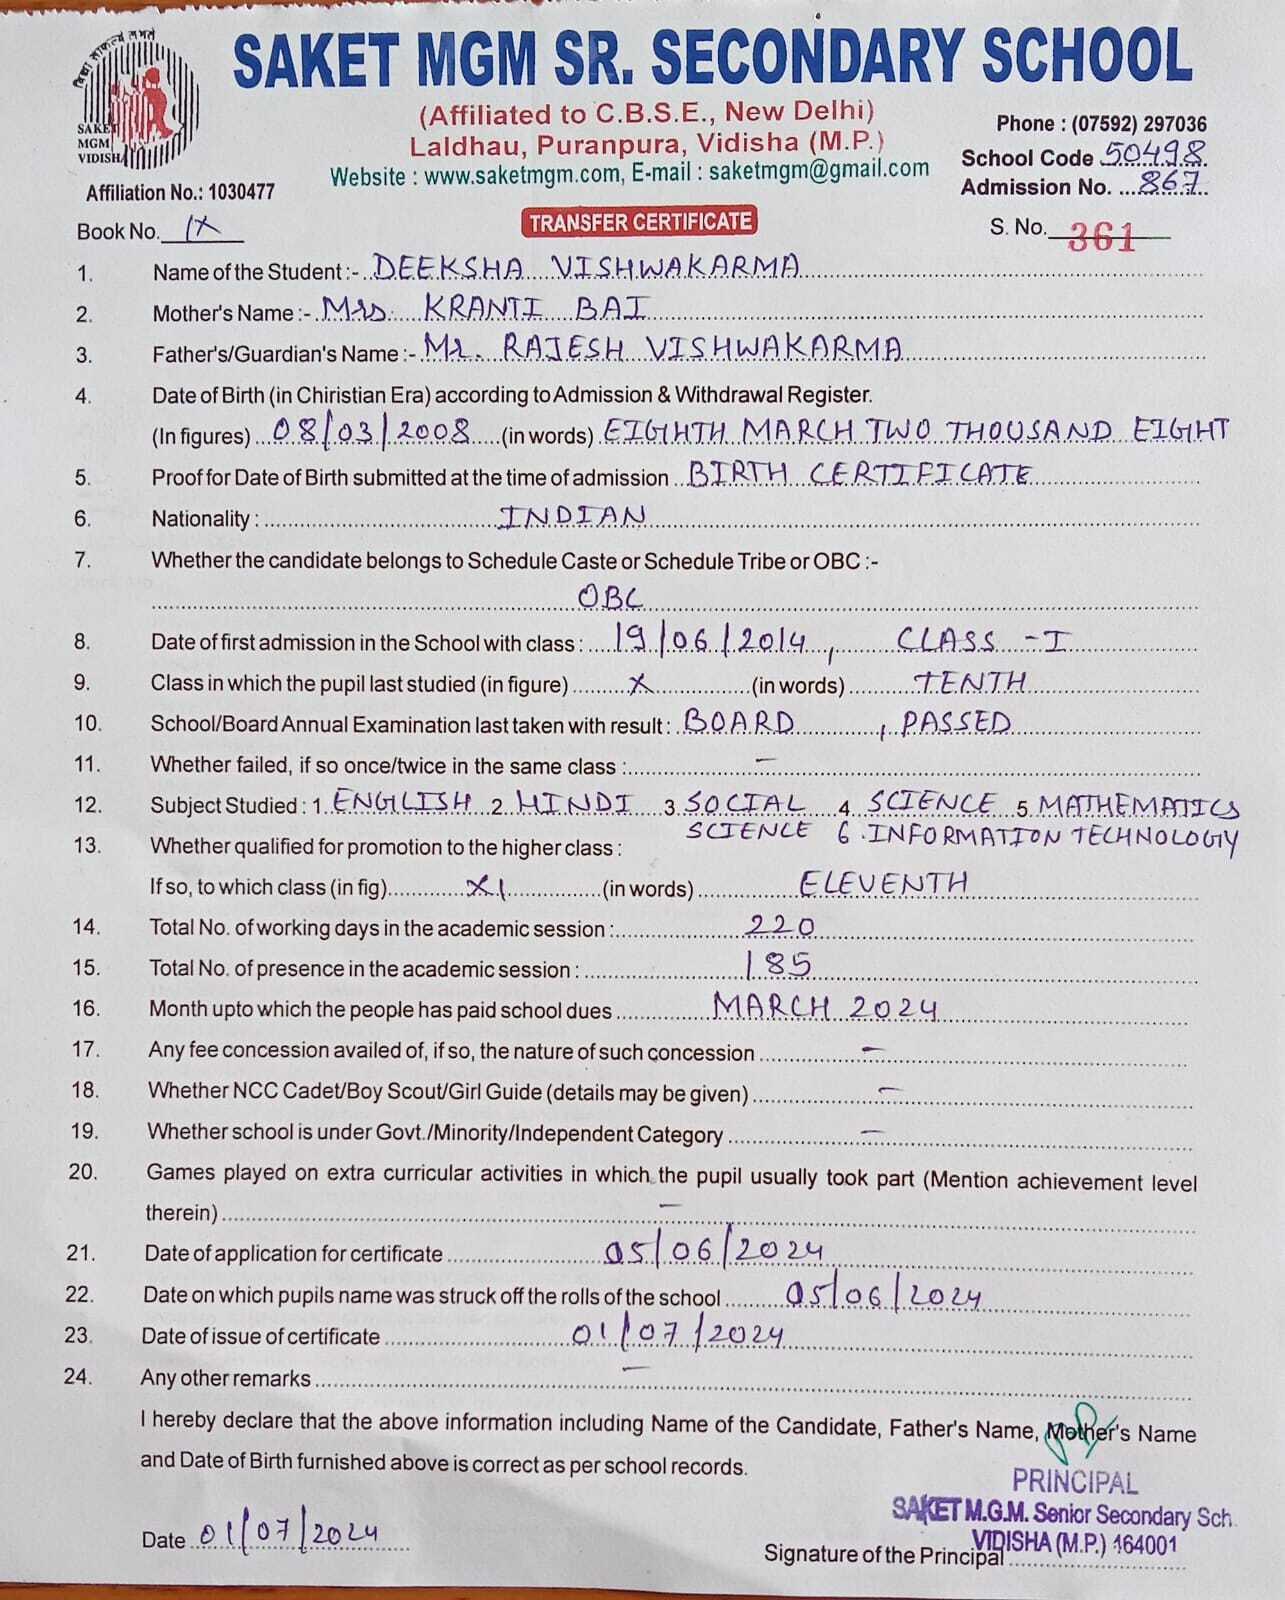 SAKET MGM SR. SECONDARY SCHOOL
(Affiliated to C.B.S.E., New Delhi)
Laldhau, Puranpura, Vidisha (M.P.)
Website : www.saketmgm.com, E-mail : saketmgm@gmail.com
SAKET
MGM
VIDISHA
Affiliation No.: 1030477
Phone : (07592) 297036
School Code 50498
Admission No. 867
Book No. IX
TRANSFER CERTIFICATE
S. No. 361
1. Name of the Student :- DEEKSHA VISHWAKARMA
2. Mother's Name :- Mrs. KRANTI BAI
3. Father's/Guardian's Name :- Mr. RAJESH VISHWAKARMA
4. Date of Birth (in Chiristian Era) according to Admission & Withdrawal Register.
(In figures) 08/03/2008 (in words) EIGHTH MARCH TWO THOUSAND EIGHT
5. Proof for Date of Birth submitted at the time of admission BIRTH CERTIFICATE
6. Nationality : INDIAN
7. Whether the candidate belongs to Schedule Caste or Schedule Tribe or OBC :-
OBC
8. Date of first admission in the School with class : 19/06/2014, CLASS - I
9. Class in which the pupil last studied (in figure) X (in words) TENTH
10. School/Board Annual Examination last taken with result : BOARD, PASSED
11. Whether failed, if so once/twice in the same class : -
12. Subject Studied : 1. ENGLISH 2. HINDI 3. SOCIAL 4. SCIENCE 5. MATHEMATICS
SCIENCE 6. INFORMATION TECHNOLOGY
13. Whether qualified for promotion to the higher class :
If so, to which class (in fig) XI (in words) ELEVENTH
14. Total No. of working days in the academic session : 220
15. Total No. of presence in the academic session : 185
16. Month upto which the people has paid school dues MARCH 2024
17. Any fee concession availed of, if so, the nature of such concession -
18. Whether NCC Cadet/Boy Scout/Girl Guide (details may be given) -
19. Whether school is under Govt./Minority/Independent Category -
20. Games played on extra curricular activities in which the pupil usually took part (Mention achievement level
therein) -
21. Date of application for certificate 05/06/2024
22. Date on which pupils name was struck off the rolls of the school 05/06/2024
23. Date of issue of certificate 01/07/2024
24. Any other remarks -
I hereby declare that the above information including Name of the Candidate, Father's Name, Mother's Name
and Date of Birth furnished above is correct as per school records.
PRINCIPAL
SAKET M.G.M. Senior Secondary Sch.
VIDISHA (M.P.) 464001
Date 01/07/2024
Signature of the Principal